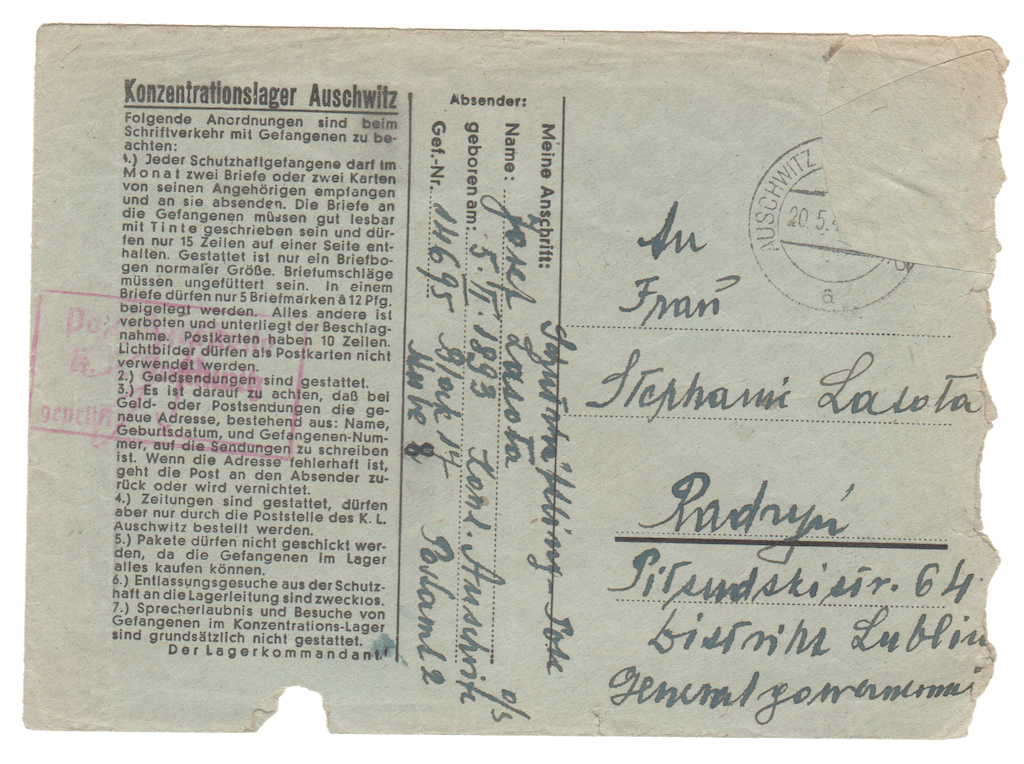 Konzentrationslager Auschwitz
Folgende Anordnungen sind beim
Schriftverkehr mit Gefangenen zu be-
achten:
1.) Jeder Schutzhaftgefangene darf im
Monat zwei Briefe oder zwei Karten
von seinen Angehörigen empfangen
und an sie absenden. Die Briefe an
die Gefangenen müssen gut lesbar
mit Tinte geschrieben sein und dür-
fen nur 15 Zeilen auf einer Seite ent-
halten. Gestattet ist nur ein Briefbo-
gen normaler Größe. Briefumschläge
müssen ungefüttert sein. In einem
Briefe dürfen nur 5 Briefmarken à 12 Pfg.
beigelegt werden. Alles andere ist
verboten und unterliegt der Beschlag-
nahme. Postkarten haben 10 Zeilen.
Lichtbilder dürfen als Postkarten nicht
verwendet werden.
2.) Geldsendungen sind gestattet.
3.) Es ist darauf zu achten, daß bei
Geld- oder Postsendungen die ge-
naue Adresse, bestehend aus: Name,
Geburtsdatum, und Gefangenen-Num-
mer, auf die Sendungen zu schreiben
ist. Wenn die Adresse fehlerhaft ist,
geht die Post an den Absender zu-
rück oder wird vernichtet.
4.) Zeitungen sind gestattet, dürfen
aber nur durch die Poststelle des K. L.
Auschwitz bestellt werden.
5.) Pakete dürfen nicht geschickt wer-
den, da die Gefangenen im Lager
alles kaufen können.
6.) Entlassungsgesuche aus der Schutz-
haft an die Lagerleitung sind zwecklos.
7.) Sprecherlaubnis und Besuche von
Gefangenen im Konzentrations-Lager
sind grundsätzlich nicht gestattet.
Der Lagerkommandant.
geprüft
Absender:
Meine Anschrift:
Name: Josef Lasota
geboren am: 5.II.1893 Konz. Auschwitz o/s
Gef.-Nr. 14695 Block 17 Postamt 2
Stube 8
AUSCHWITZ
20.5.
a
An
Frau
Stephanie Lasota
Radzyń
Pilsudskistr. 64
Distrikt Lublin